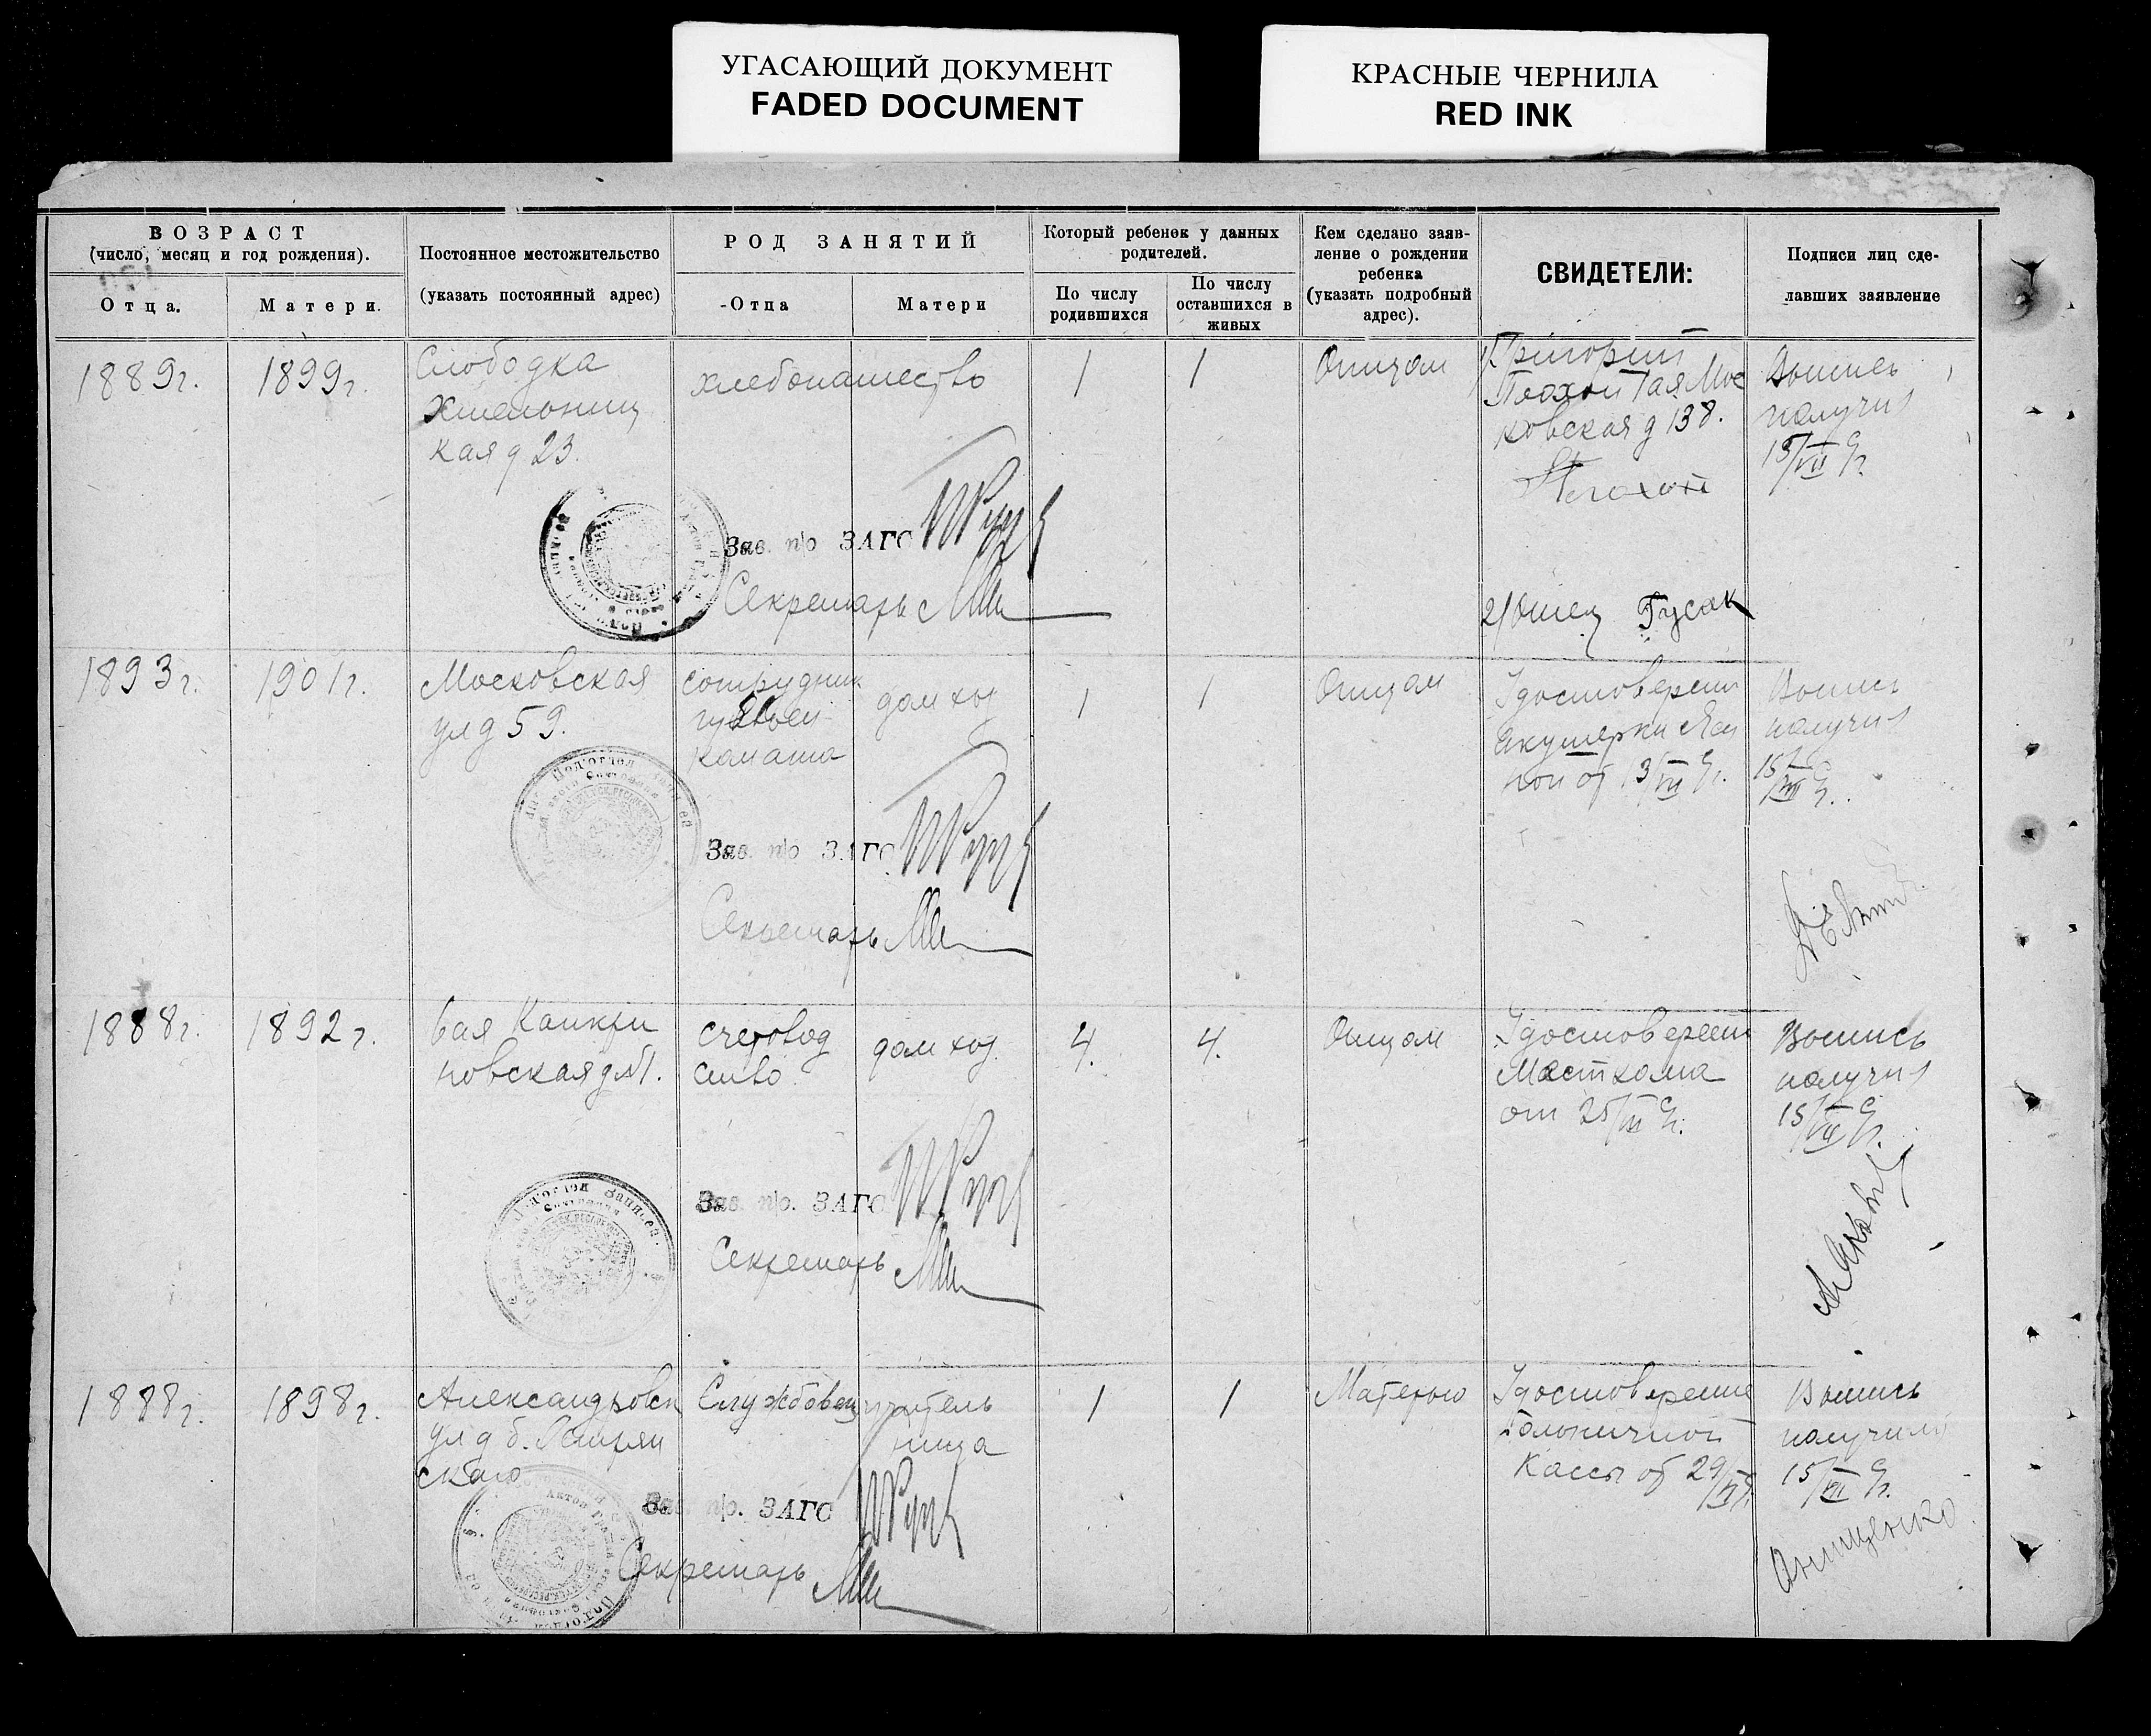 УГАСАЮЩИЙ ДОКУМЕНТ
FADED DOCUMENT
КРАСНЫЕ ЧЕРНИЛА
RED INK
ВОЗРАСТ
(число, месяц и год рождения).
Отца.
Матери.
Постоянное местожительство
(указать постоянный адрес)
РОД ЗАНЯТИЙ
Отца
Матери
Который ребенок у данных
родителей.
По числу
родившихся
По числу
оставшихся в
живых
Кем сделано заяв-
ление о рождении
ребенка
(указать подробный
адрес).
СВИДЕТЕЛИ:
Подписи лиц сде-
лавших заявление
1889г.
1899г.
Слободка
кая д 23.
хлебопашество
1
1
Отцом
Григорий
Плахой 1ая Мос
ковская д 138.
Плахой
2/ Отец Гусак
Выпись
получил
15/VII
Зав. п/о ЗАГС
Секретарь
1893г.
1901г.
Московская
ул д 59.
сотрудник
дом хоз
1
1
Отцом
Удостоверен
акушерки
от 13/VII
Выпись
получил
15/VII
Зав. п/о ЗАГС
Секретарь
1888г.
1892г.
новская д №1.
счетовод
ство
дом хоз.
4.
4.
Отцом
Удостоверен
Месткома
от 25/VI
Выпись
получил
15/VII
Зав. п/о. ЗАГС
Секретарь
1888г.
1898г.
Александровск
ул д б.
ского
Службовец
учитель
ница
1
1
Матерью
Удостоверение
Больничной
Кассы от 29/VI
Выпись
получила
15/VII
Онищенко
Зав. п/о. ЗАГС
Секретарь